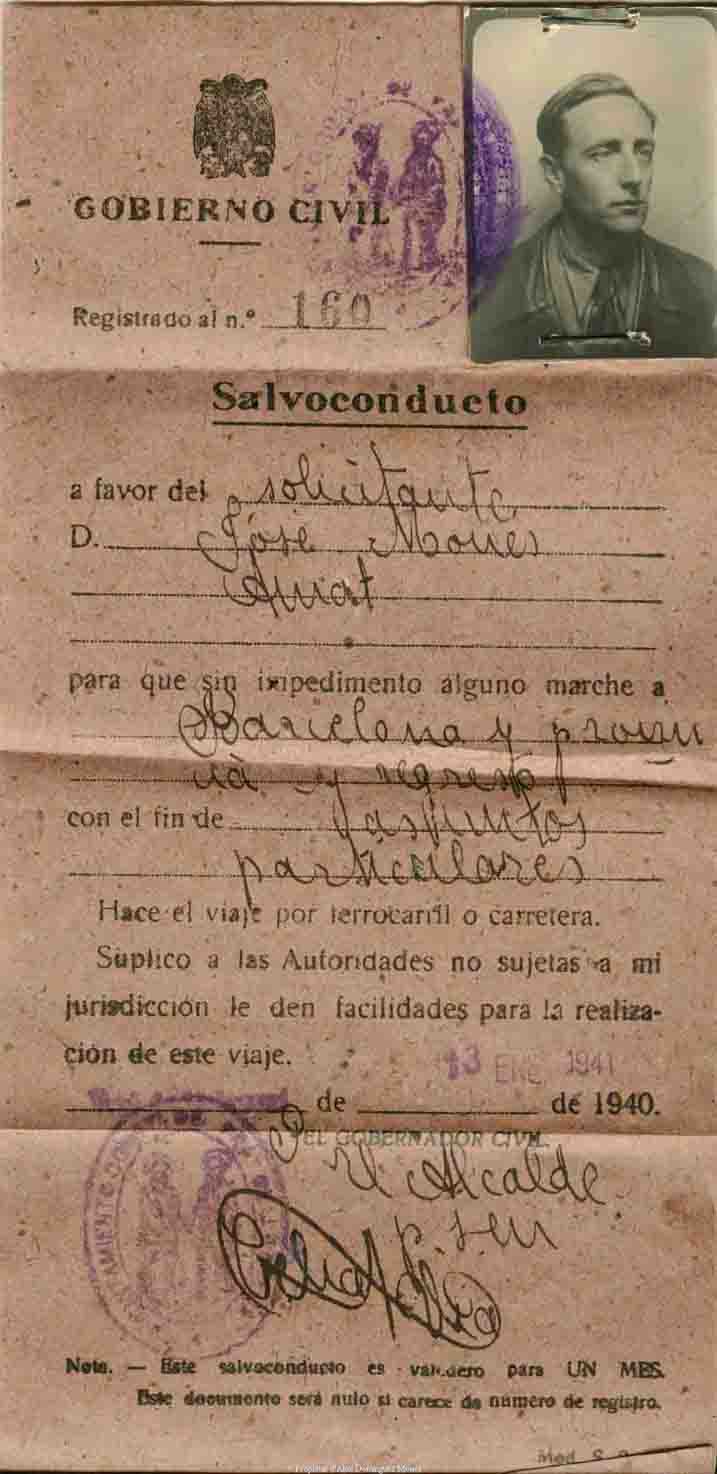 GOBIERNO CIVIL
Registrado al n.º 160
Salvoconducto
a favor del solicitante
D. José Mones
Amat
para que sin impedimento alguno marche a
Barcelona y provin
cia y regreso
con el fin de asuntos
particulares
Hace el viaje por ferrocarril o carretera.
Suplico a las Autoridades no sujetas a mi
jurisdicción le den facilidades para la realiza-
ción de este viaje.
13 ENE 1941
de de 1940.
P. EL GOBERNADOR CIVIL
El Alcalde
AMIENTO
Nota. — Este salvoconducto es valedero para UN MES.
Este documento será nulo si carece de número de registro.
Mod. S.